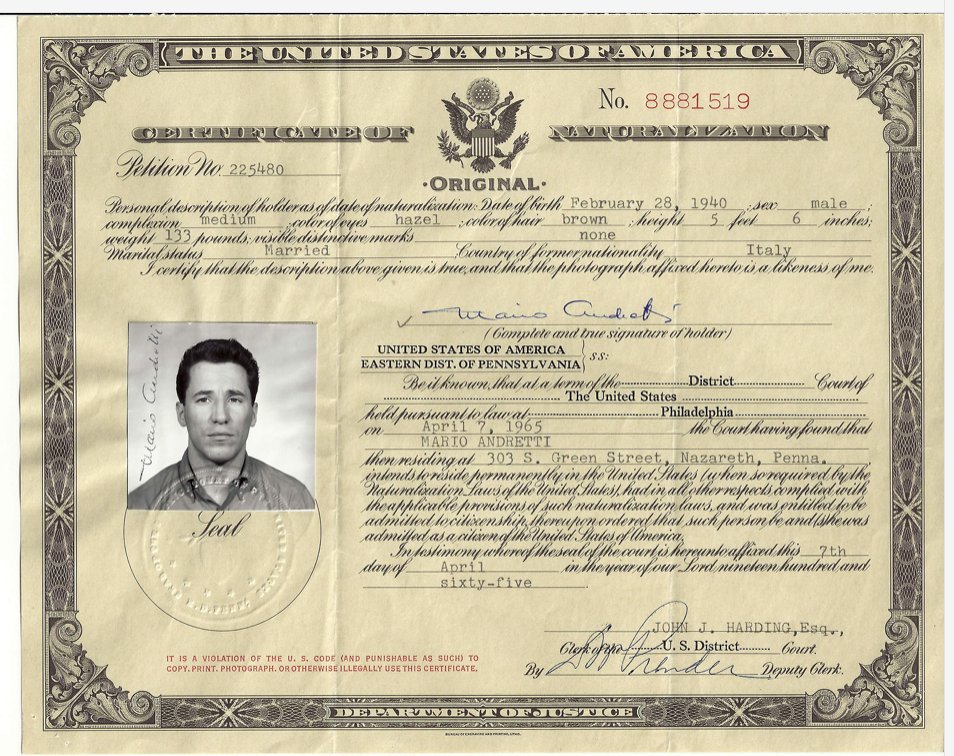 THE UNITED STATES OF AMERICA
No. 8881519
CERTIFICATE OF NATURALIZATION
Petition No. 225480
·ORIGINAL·
Personal description of holder as of date of naturalization: Date of birth February 28, 1940 ; sex male ;
complexion medium ; color of eyes hazel ; color of hair brown ; height 5 feet 6 inches;
weight 133 pounds; visible distinctive marks none
Marital status Married Country of former nationality Italy
I certify that the description above given is true, and that the photograph affixed hereto is a likeness of me.
Mario Andretti
(Complete and true signature of holder)
Mario Andretti
UNITED STATES OF AMERICA
EASTERN DIST. OF PENNSYLVANIA
ss:
Be it known, that at a term of the District Court of
The United States
held pursuant to law at Philadelphia
on April 7, 1965 the Court having found that
MARIO ANDRETTI
then residing at 303 S. Green Street, Nazareth, Penna.
intends to reside permanently in the United States (when so required by the
Naturalization Laws of the United States), had in all other respects complied with
the applicable provisions of such naturalization laws, and was entitled to be
admitted to citizenship, thereupon ordered that such person be and (s)he was
admitted as a citizen of the United States of America.
In testimony whereof the seal of the court is hereunto affixed this 7th
day of April in the year of our Lord nineteen hundred and
sixty-five
Seal
JOHN J. HARDING, Esq.,
Clerk of the U. S. District Court.
By Deputy Clerk.
IT IS A VIOLATION OF THE U. S. CODE (AND PUNISHABLE AS SUCH) TO
COPY, PRINT, PHOTOGRAPH, OR OTHERWISE ILLEGALLY USE THIS CERTIFICATE.
DEPARTMENT OF JUSTICE